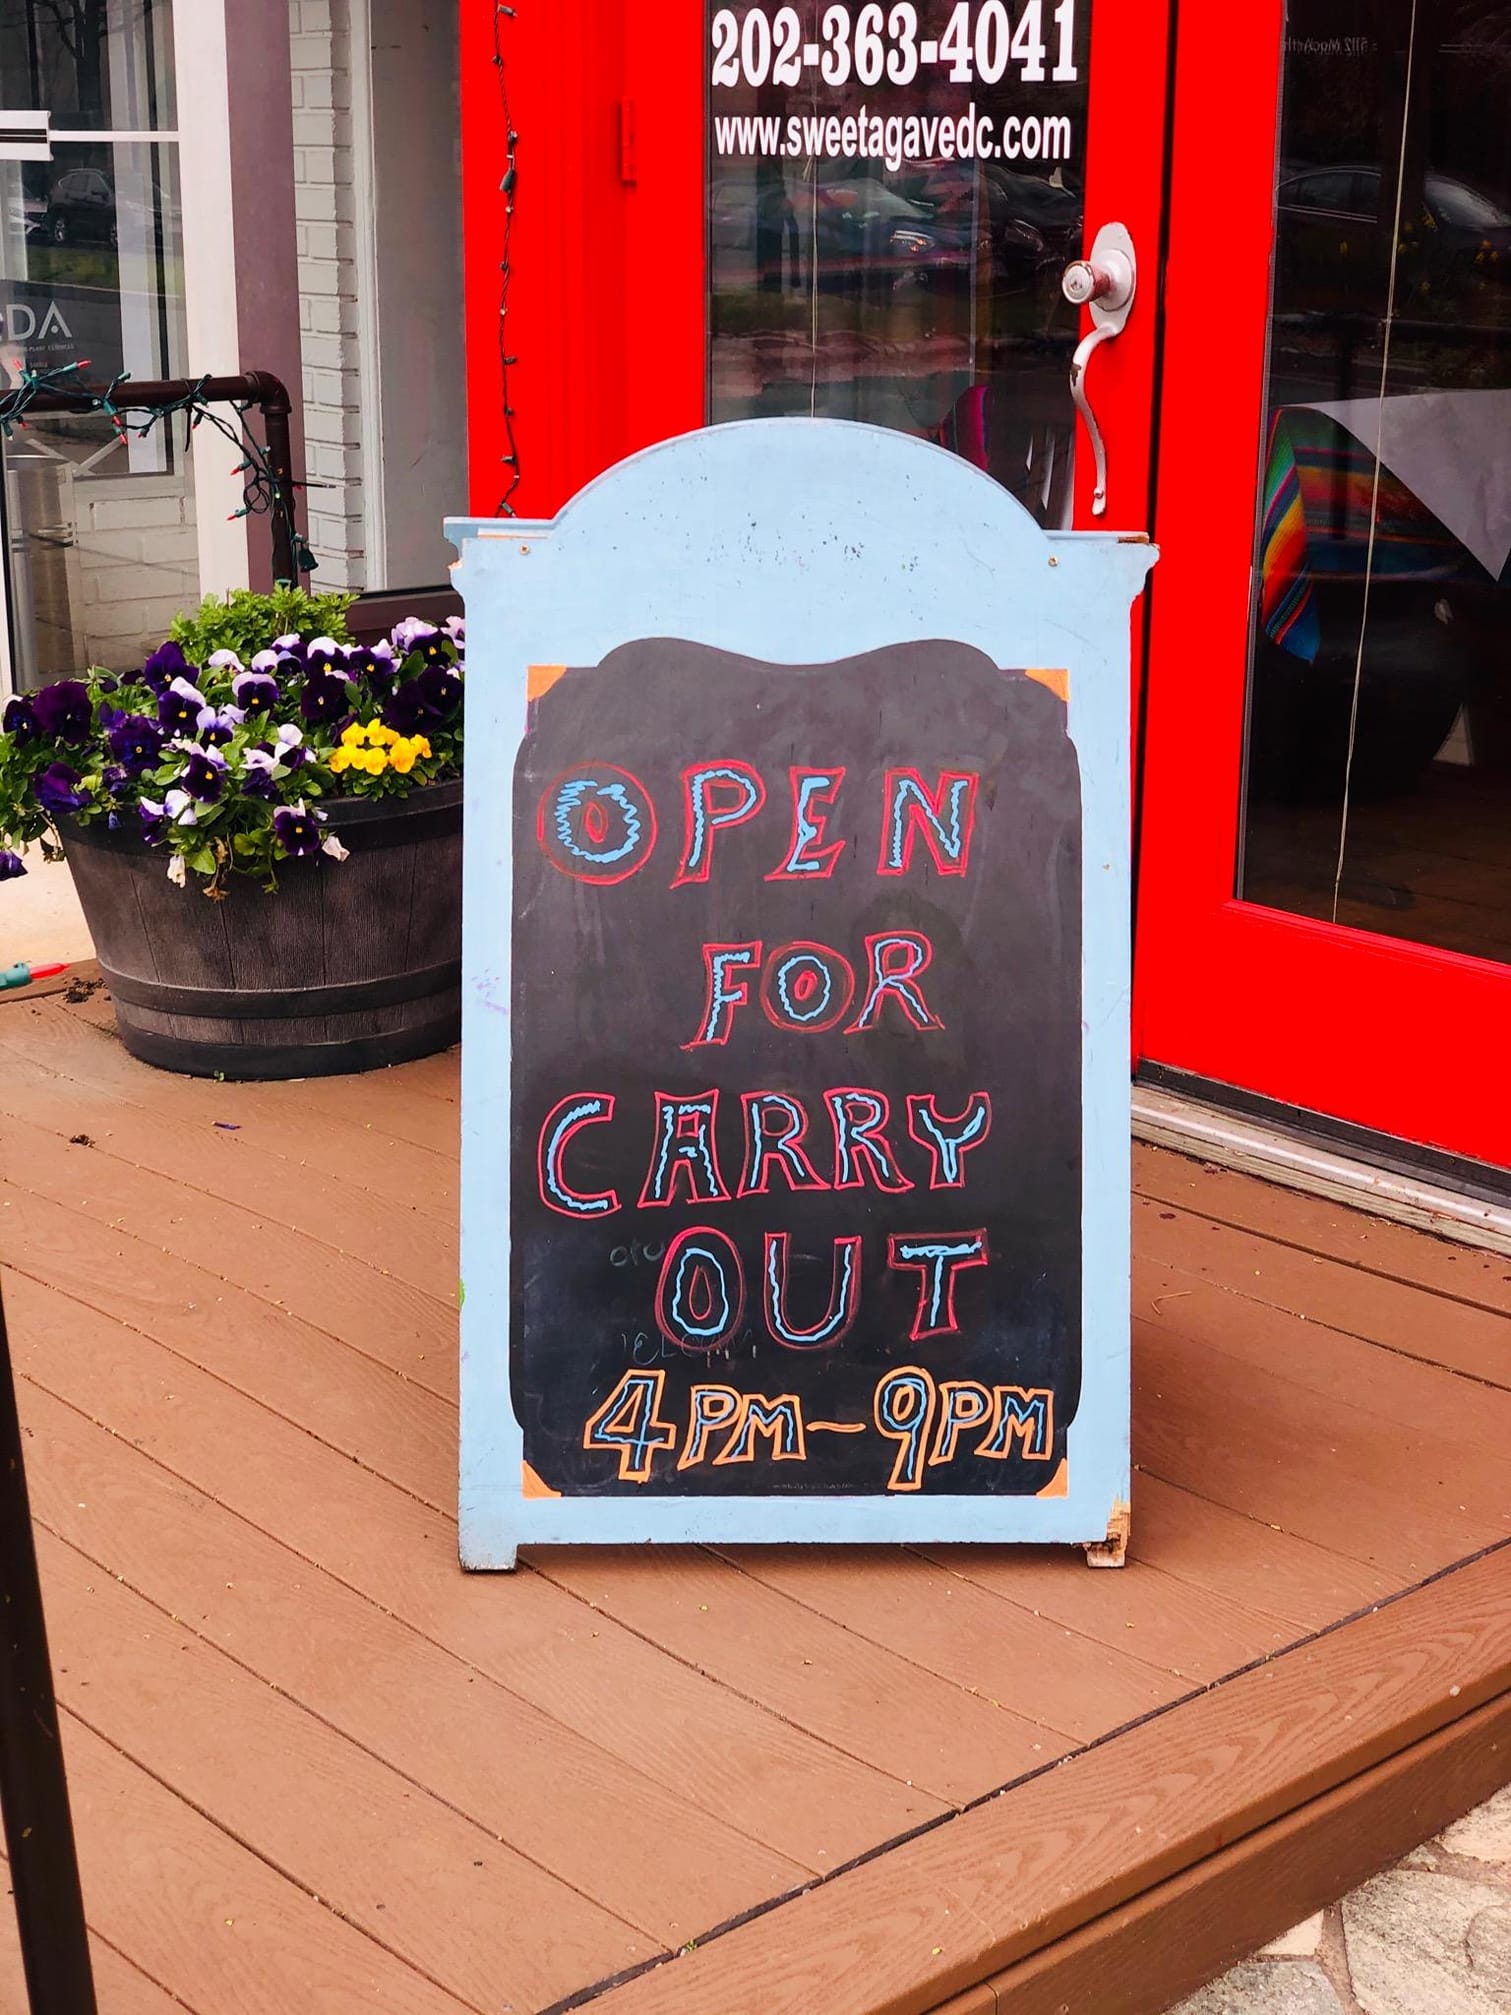 202-363-4041
www.sweetagavedc.com
DA
OPEN
FOR
CARRY
OUT
4PM~9PM